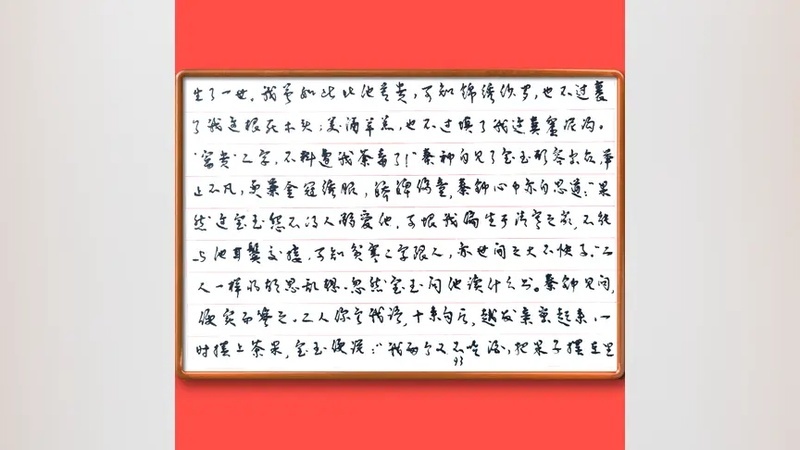 生了一世。我虽如此比他尊贵，可知锦绣纱罗，也不过裹
了我这根死木头；美酒羊羔，也不过填了我这粪窟泥沟。
“富贵”二字，不料遭我荼毒了！”秦钟自见了宝玉形容出众，举
止不凡，更兼金冠绣服，骄婢侈童，秦钟心中亦自思道：“果
然这宝玉怨不得人溺爱他，可恨我偏生于清寒之家，不能
与他耳鬓交接，可知贫寒二字限人，亦世间之大不快事。”二
人一样的胡思乱想。忽然宝玉问他读什么书。秦钟见问，
便实而答之。二人你言我语，十来句后，越发亲密起来。一
时摆上茶果，宝玉便说：“我两个又不吃酒，把果子摆在里
93